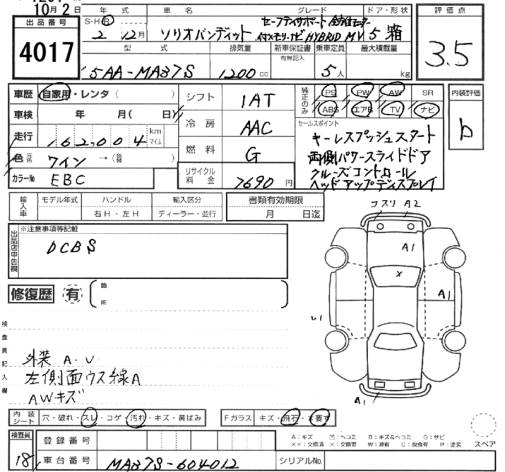 10月2日
出品番号 4017
S・H・R 年 月 車名 グレード ドア・形状 評価点
2 12月 ソリオバンディット HYBRID MV 5 箱 3.5
型式 排気量 新車保証書 乗車定員 最大積載量
有無記入
5AA-MA37S 1200cc 5人 kg
車歴 自家用・レンタ( ) シフト 1AT
純正のみ PS PW AW SR
ABS エアB TV ナビ
内装評価 b
車検 年 月( 日) 冷房 AAC
セールスポイント
走行 162,004 km マイル
キーレスプッシュスタート
両側パワースライドドア
クルーズコントロール
ヘッドアップディスプレイ
燃料 G
色 ワイン →( )
カラーNo EBC
リサイクル料金 7690円
輸入車 モデル年式 ハンドル 輸入区分 書類有効期限
年 右H・左H ディーラー・並行 月 日迄
コスリ A2
※注意事項等記載
出品店申告欄
DCBS
A1
X
A1
A1
修復歴 有 箇所
検査員記入欄
外装 A.U
左側面ウス線A
AWキズ
A1
内装シート 穴・破れ・スレ・コゲ・汚れ・キズ・黄ばみ Fガラス キズ・飛石
スペア
検査員 18
登録番号
車台番号 MA37S-604012 シリアルNo.
A:キズ U:ヘコミ B:キズ&ヘコミ S:サビ
XX:交換済 X:要交換 W:波修 C:腐食有 P:塗装